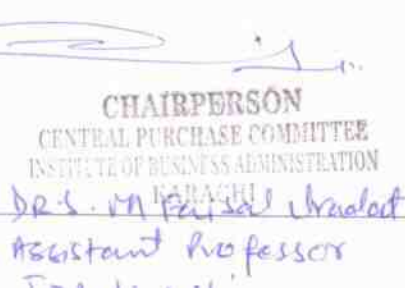 CHAIRPERSON
CENTRAL PURCHASE COMMITTEE
INSTITUTE OF BUSINESS ADMINISTRATION
KARACHI
DR. S. M Faisal
Assistant Professor